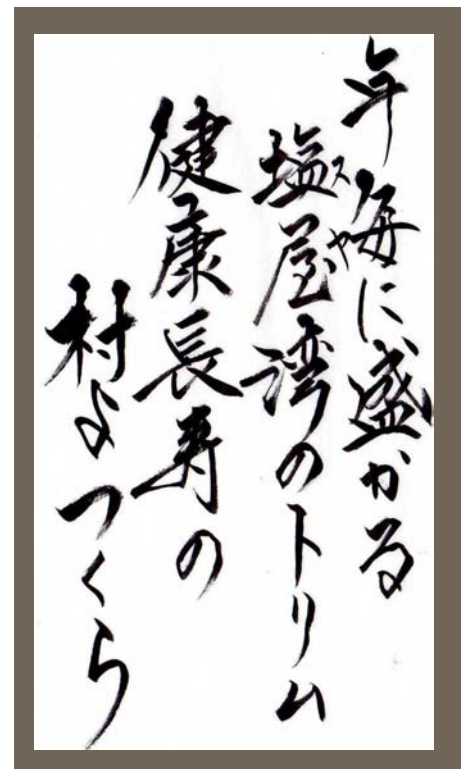 年毎に盛かる
スや
塩屋湾のトリム
健康長寿の
村よつくら